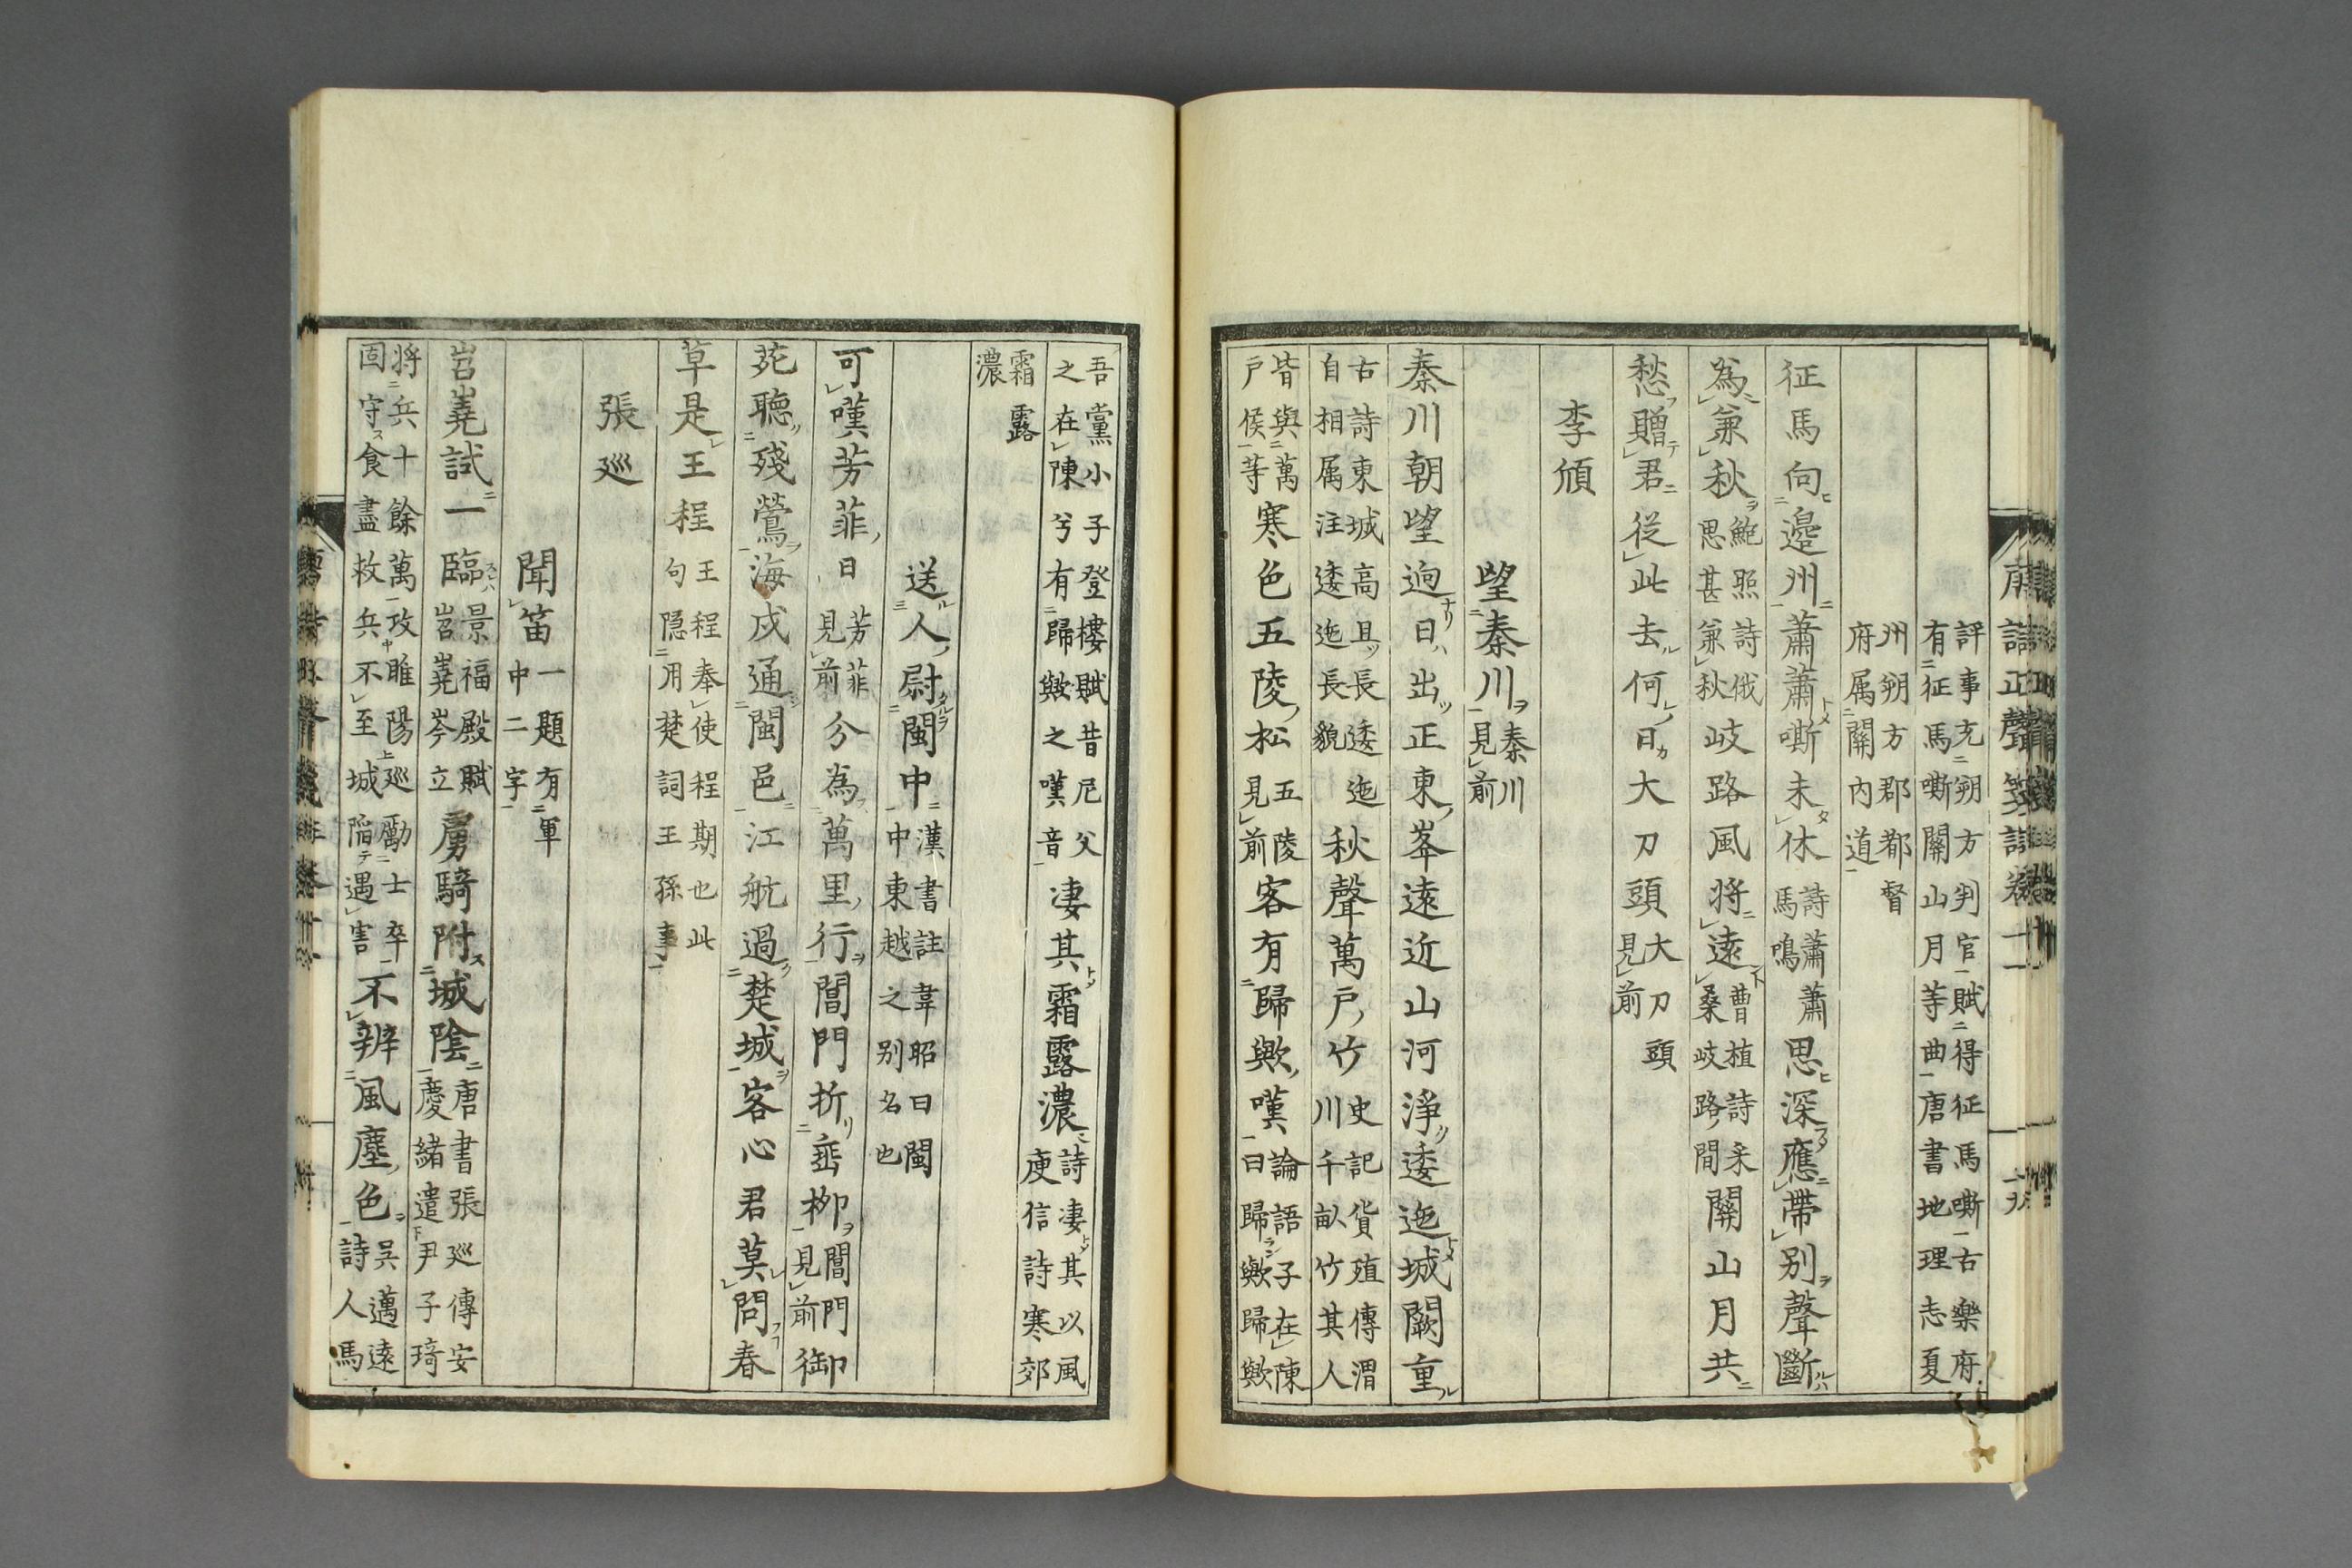 唐詩正聲箋註卷十一
評事充朔方判官賦得征馬嘶古樂府有征馬嘶關山月等曲唐書地理志夏
州朔方郡都督府属關內道
征馬向邉州蕭蕭嘶未休詩蕭蕭馬鳴思深應帶别聲斷
為兼秋鮑照詩俄思甚兼秋岐路風将遠曹植詩采桑岐路間關山月共
愁贈君従此去何日大刀頭大刀頭見前
李頎
望秦川秦川見前
秦川朝望逈日出正東峯遠近山河淨逶迤城闕重
古詩東城高且長逶迤自相属注逶迤長貌秋聲萬戶竹史記貨殖傳渭川千畝竹其人
皆與萬戶侯等寒色五陵松五陵見前客有歸歟嘆論語子在陳曰歸歟歸歟
吾黨小子登樓賦昔尼父之在陳兮有歸歟之嘆音凄其霜露濃詩凄其以風庾信詩寒郊
霜露濃
送人尉閩中漢書註韋昭曰閩中東越之别名也
可嘆芳菲日芳菲見前分為萬里行閶門折埀栁閶門見前御
苑聴殘鶯海戍通閩邑江航過楚城客心君莫問春
草是王程王程奉使程期也此句隠用楚詞王孫事
張巡
聞笛一題有軍中二字
岧嶤試一臨景福殿賦岧嶤岑立虜騎附城陰唐書張巡傳安慶緒遣尹子琦
将兵十餘萬攻睢陽巡勵士卒固守食盡救兵不至城陥遇害不辨風塵色呉邁遠詩人馬